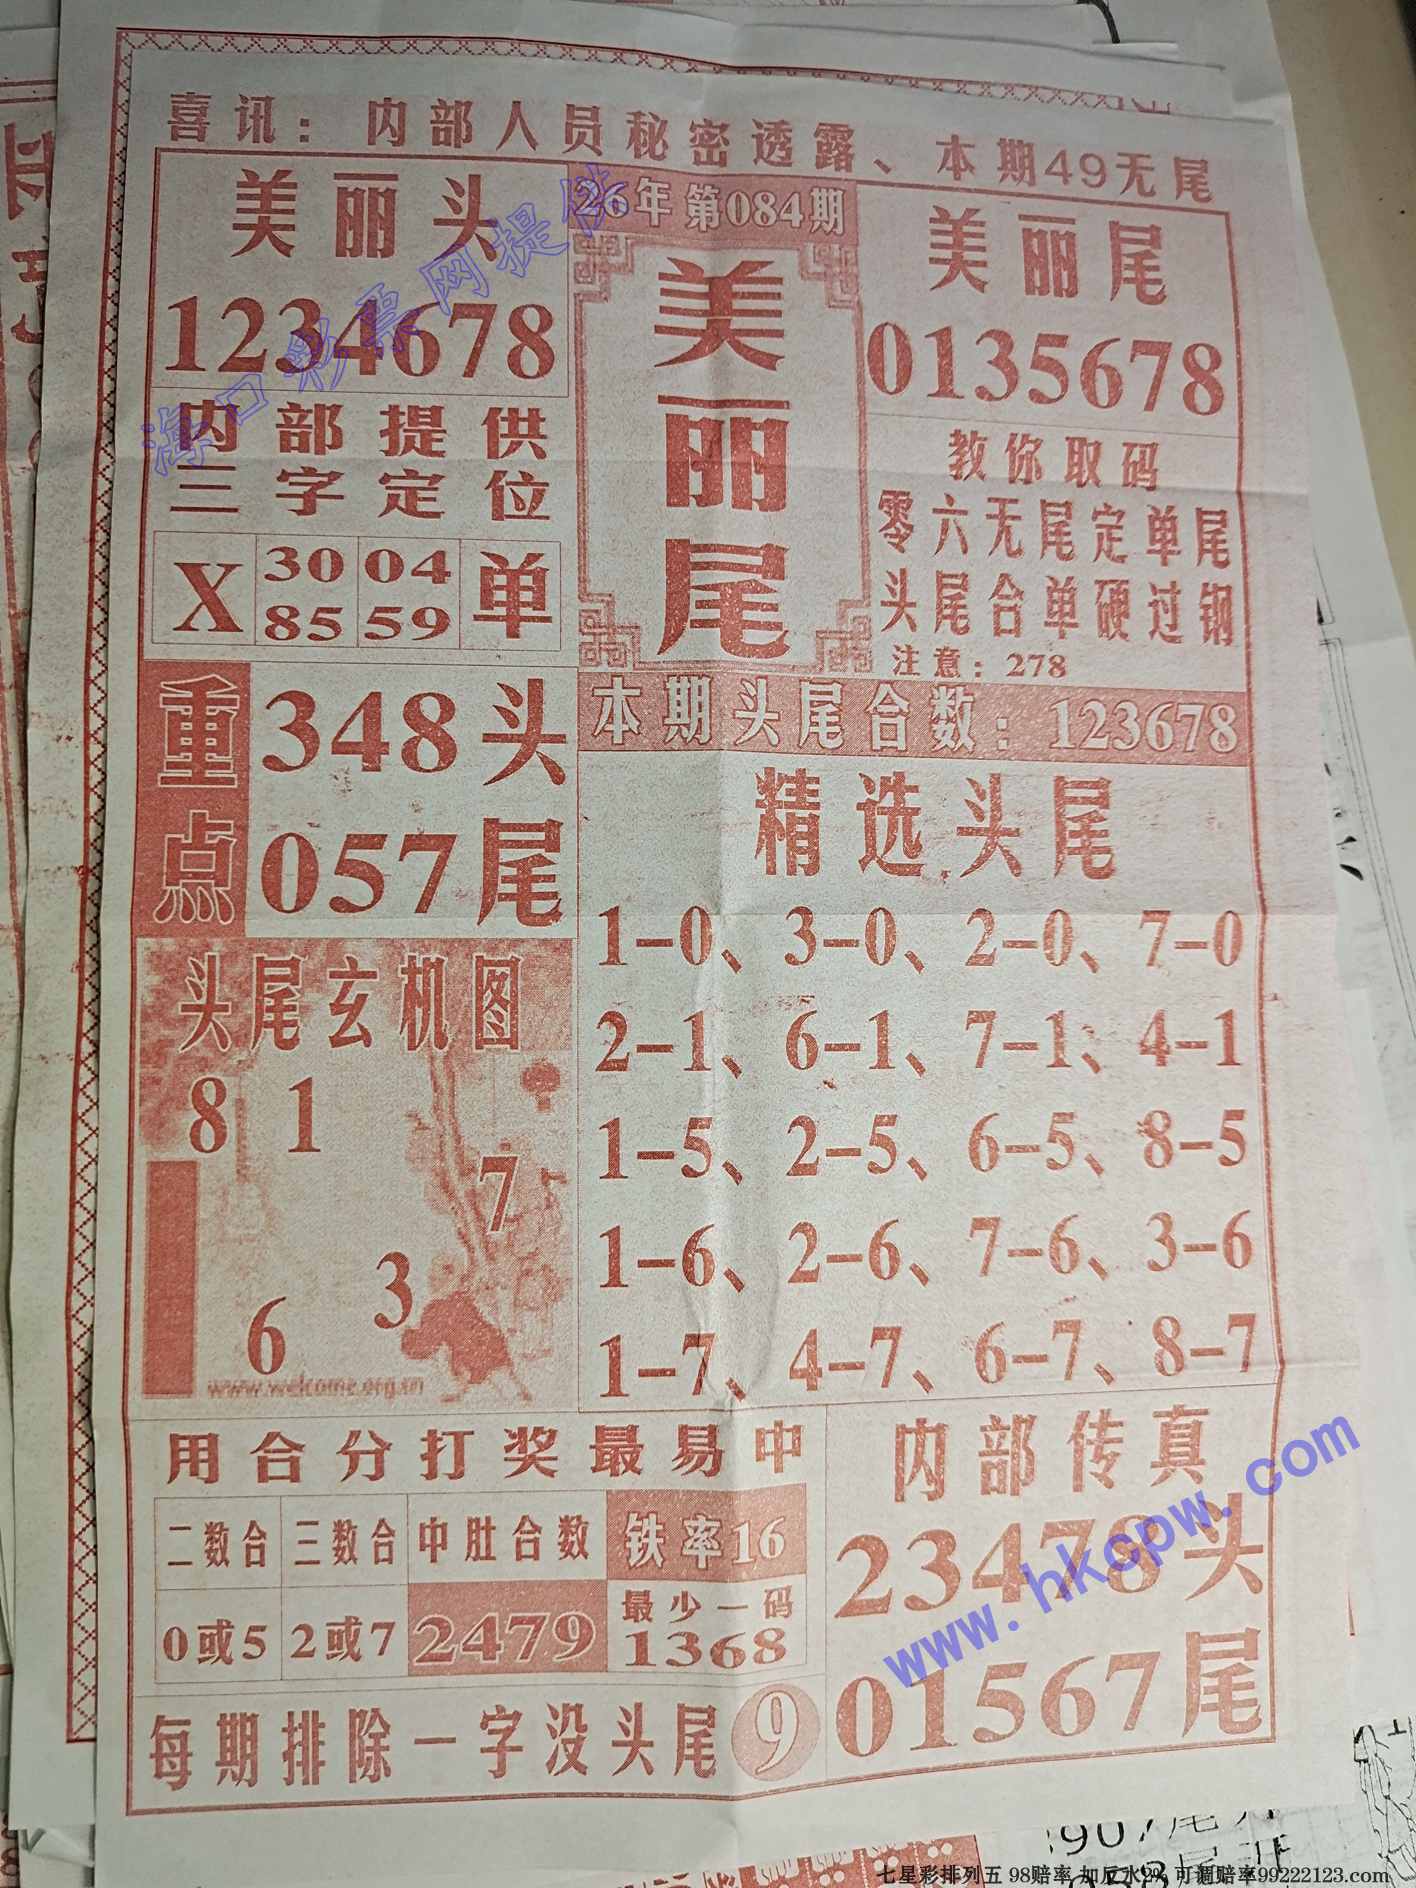 喜讯：内部人员秘密透露、本期49无尾
美丽头
1234678
内部提供
三字定位
X 30 04 单
85 59
重点
348头
057尾
头尾玄机图
8 1
7
3
6
www.welcome.org.cn
26年第084期
美丽尾
美丽尾
0135678
教你取码
零六无尾定单尾
头尾合单硬过钢
注意：278
本期头尾合数：123678
精选头尾
1-0、3-0、2-0、7-0
2-1、6-1、7-1、4-1
1-5、2-5、6-5、8-5
1-6、2-6、7-6、3-6
1-7、4-7、6-7、8-7
用合分打奖最易中
二数合 三数合 中肚合数 铁率16
0或5 2或7 2479 最少一码
1368
每期排除一字没头尾 9
内部传真
23478头
01567尾
海口彩票网提供
www.hkcpw.com
七星彩排列五 98赔率 加反水2% 可调赔率99222123.com